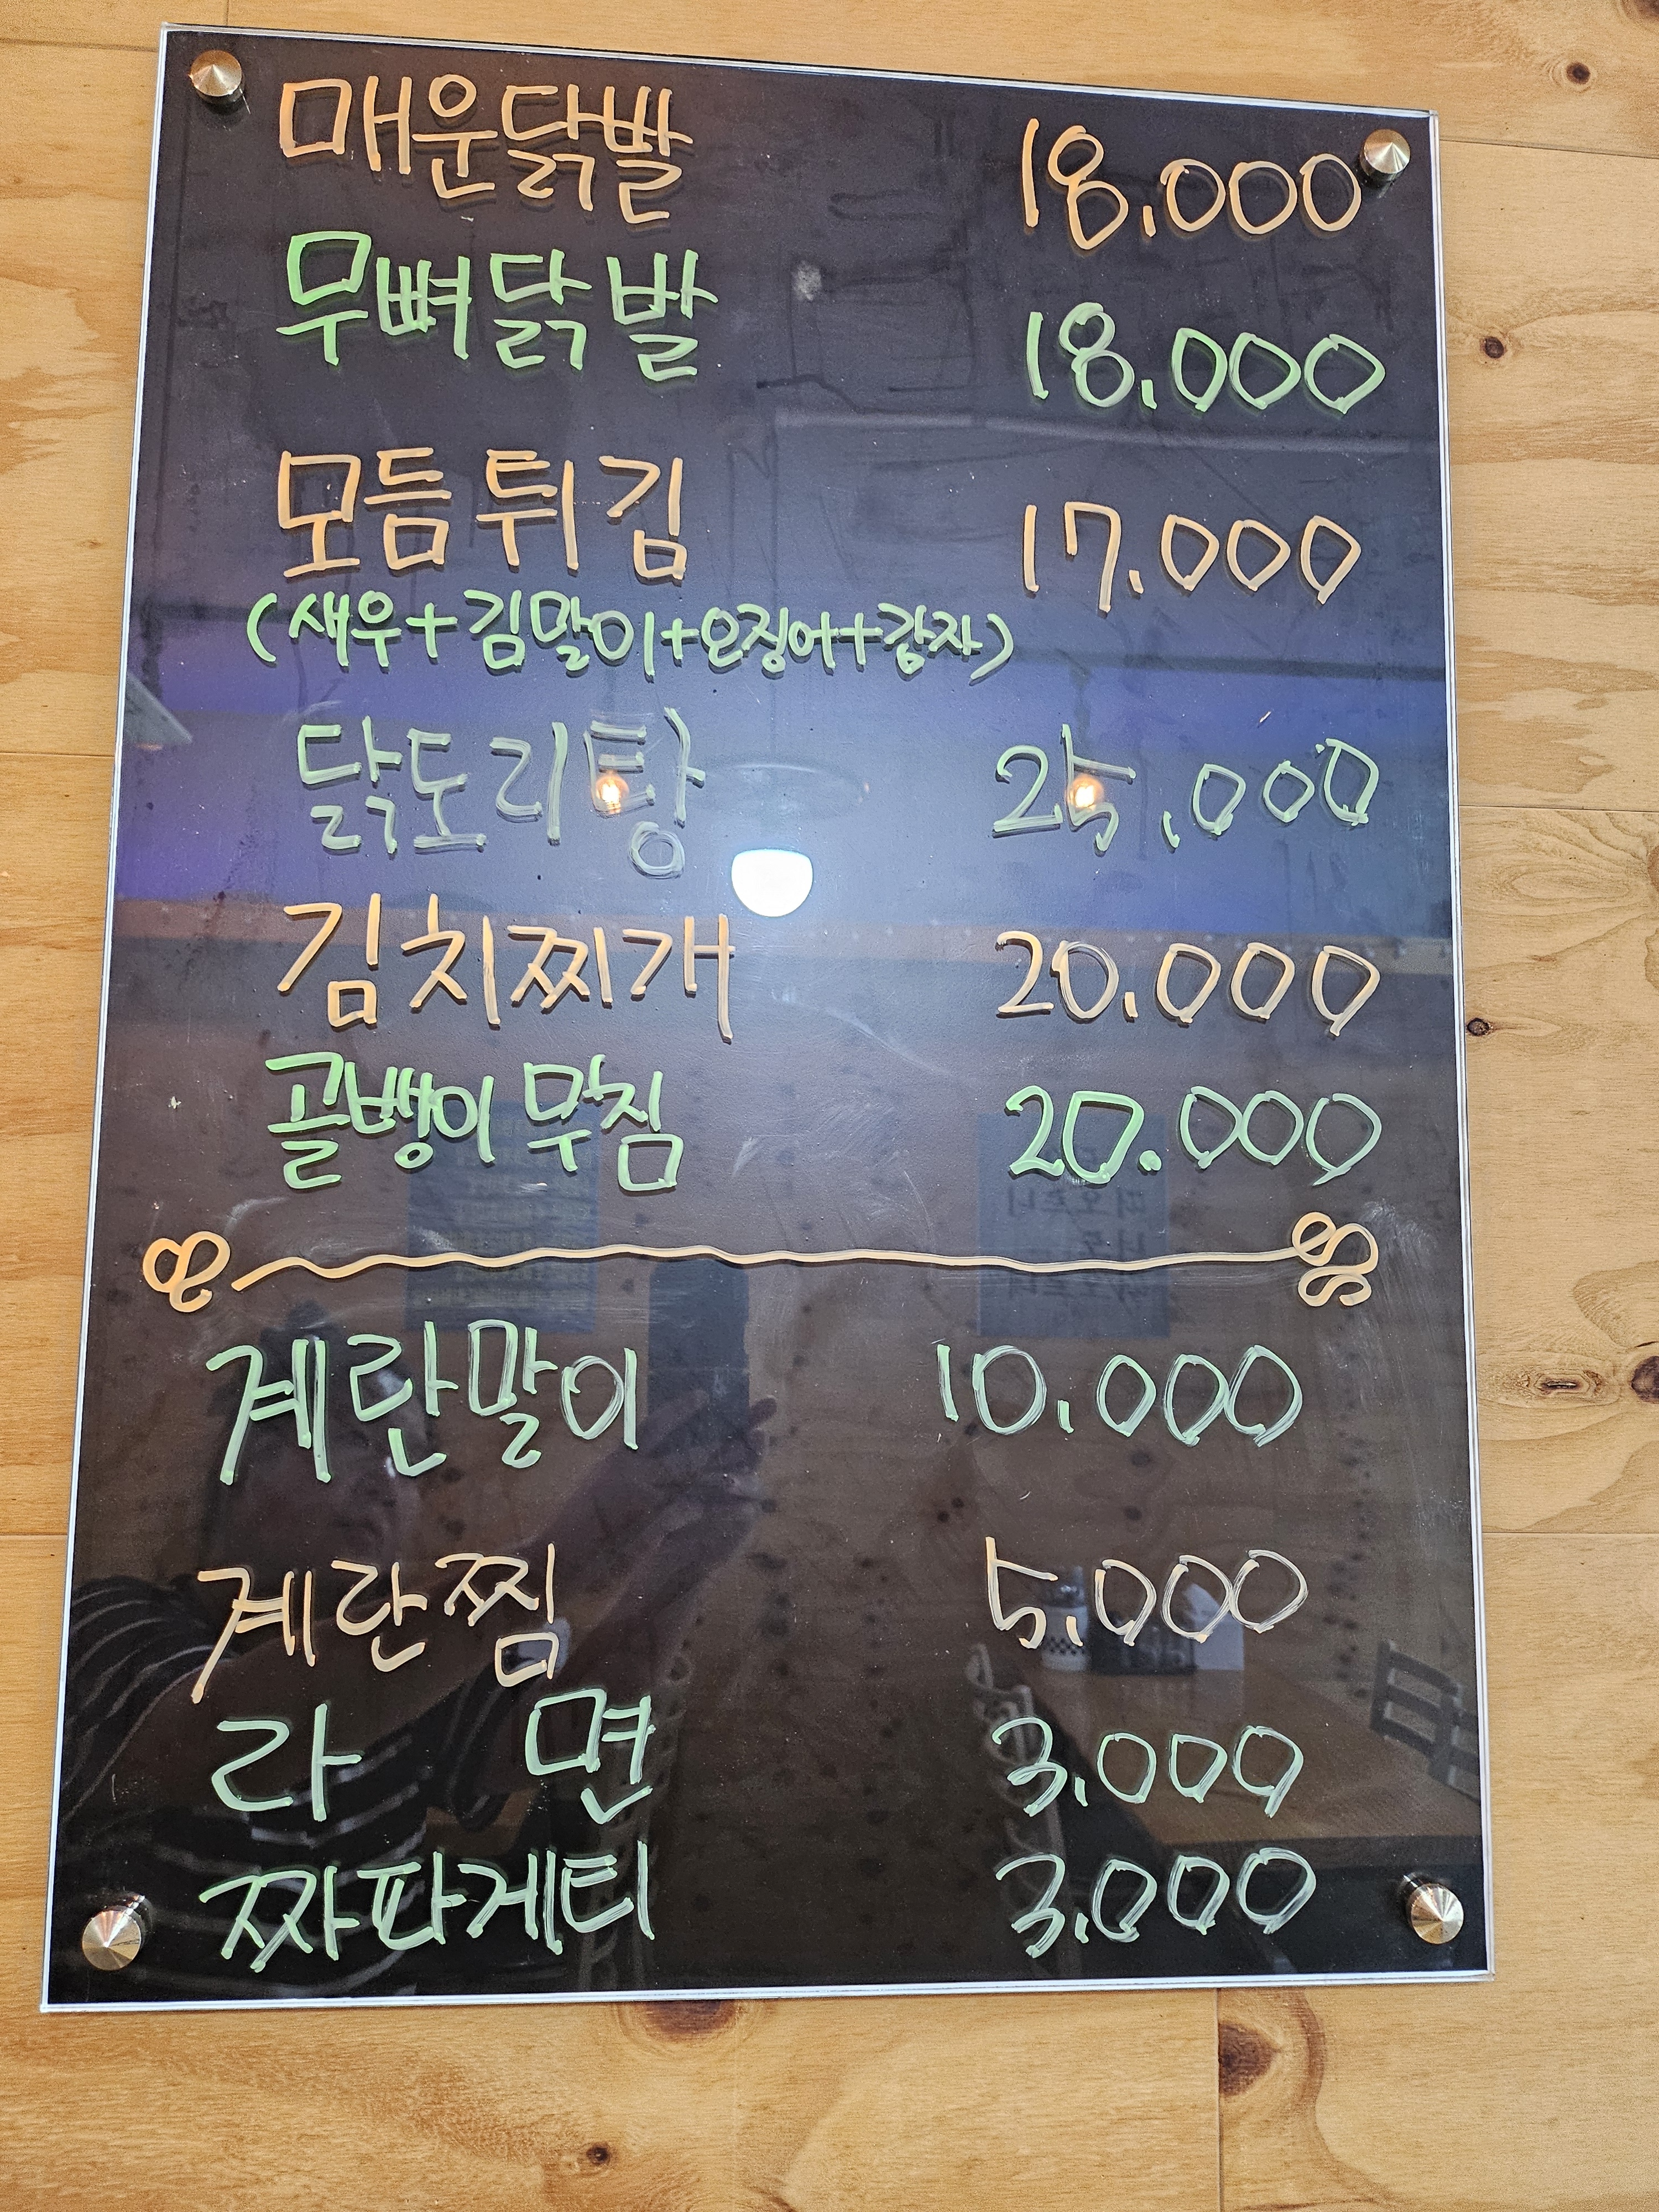 매운닭발 18,000
무뼈닭발 18,000
모듬튀김 17.000
(새우+김말이+오징어+감자)
닭도리탕 25,000
김치찌개 20.000
골뱅이 무침 20.000
계란말이 10,000
계란찜 5,000
라 면 3,000
짜파게티 3,000